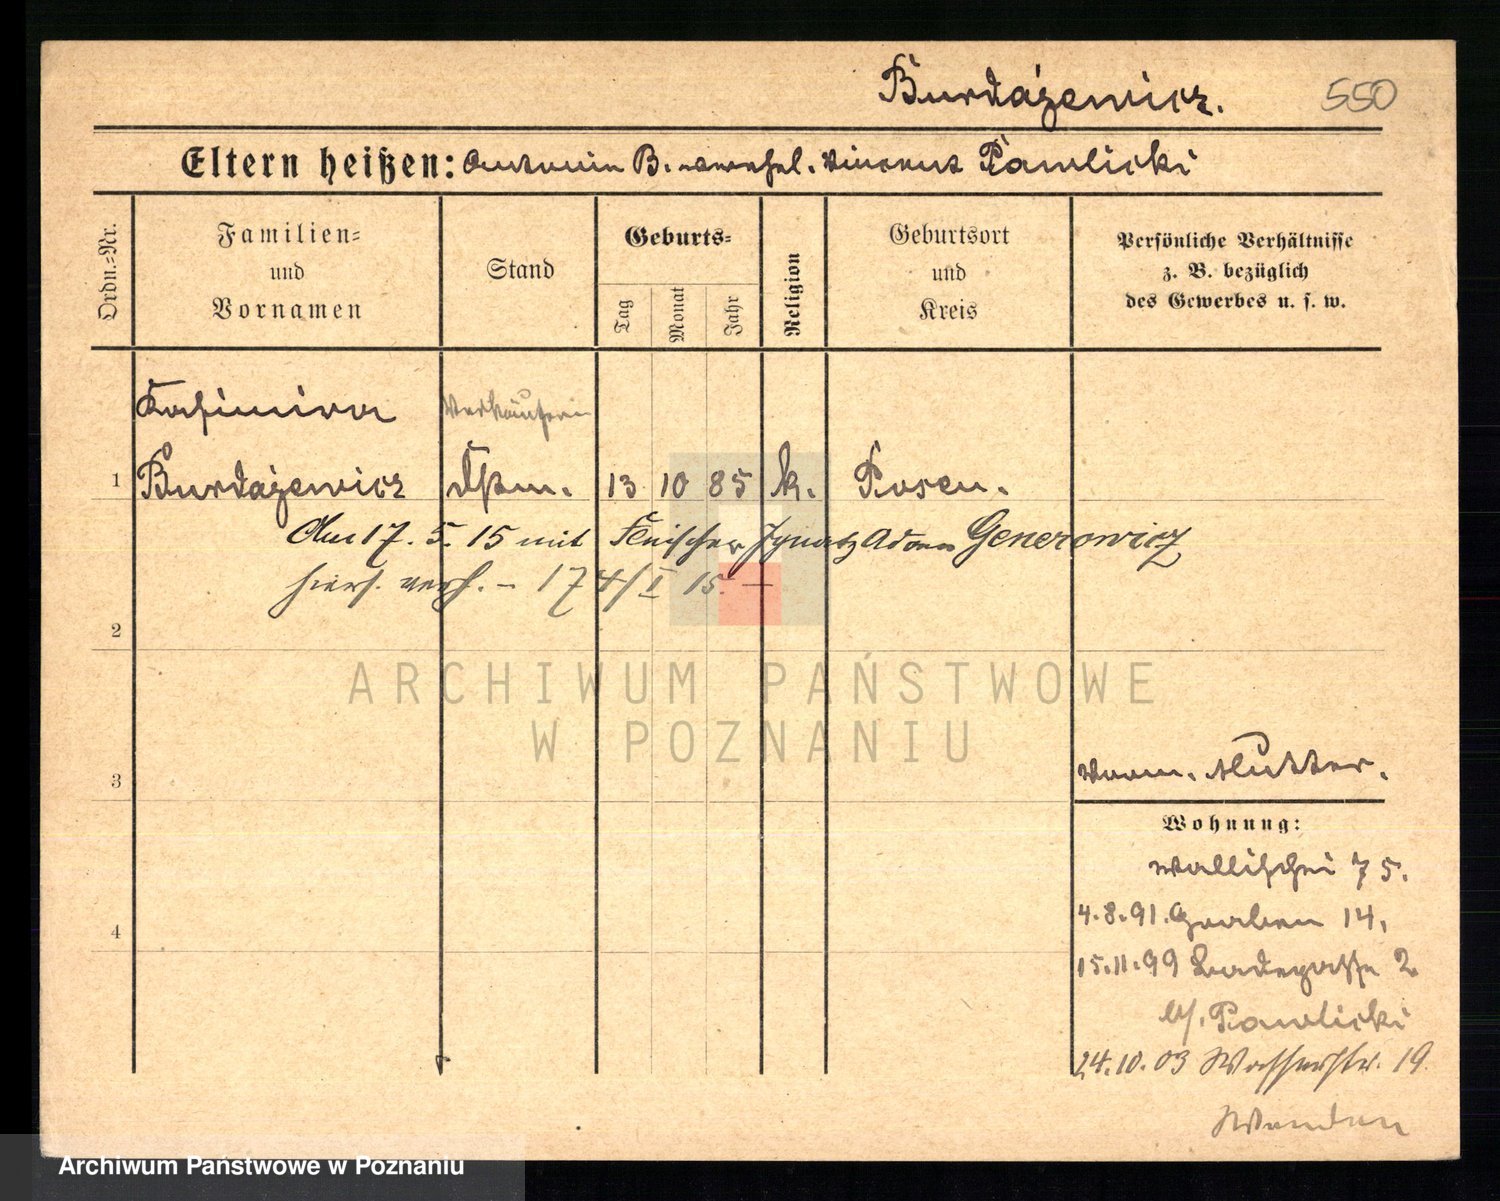 Burdażewicz.
550
Eltern heißen: Antonie B. verehel. Vincent Pawlicki
Ordn.=Nr.
Familien=
und
Vornamen
Stand
Geburts=
Tag
Monat
Jahr
Religion
Geburtsort
und
Kreis
Persönliche Verhältnisse
z. B. bezüglich
des Gewerbes u. s. w.
Kasimira Verkäuferin
1 Burdażewicz 13 10 85 k. Posen.
Am 17. 5. 15 mit Fleischer Ignatz Adam Generowicz
hiers. verh. – 174/I 15. –
2
ARCHIWUM PAŃSTWOWE
W POZNANIU
Mutter.
3
Wohnung:
Wallischei 75.
4.8.91. Graben 14,
4
15.11.99 Badegasse 2
b/. Pawlicki
24.10.03 Wasserstr. 19
Wenden
Archiwum Państwowe w Poznaniu